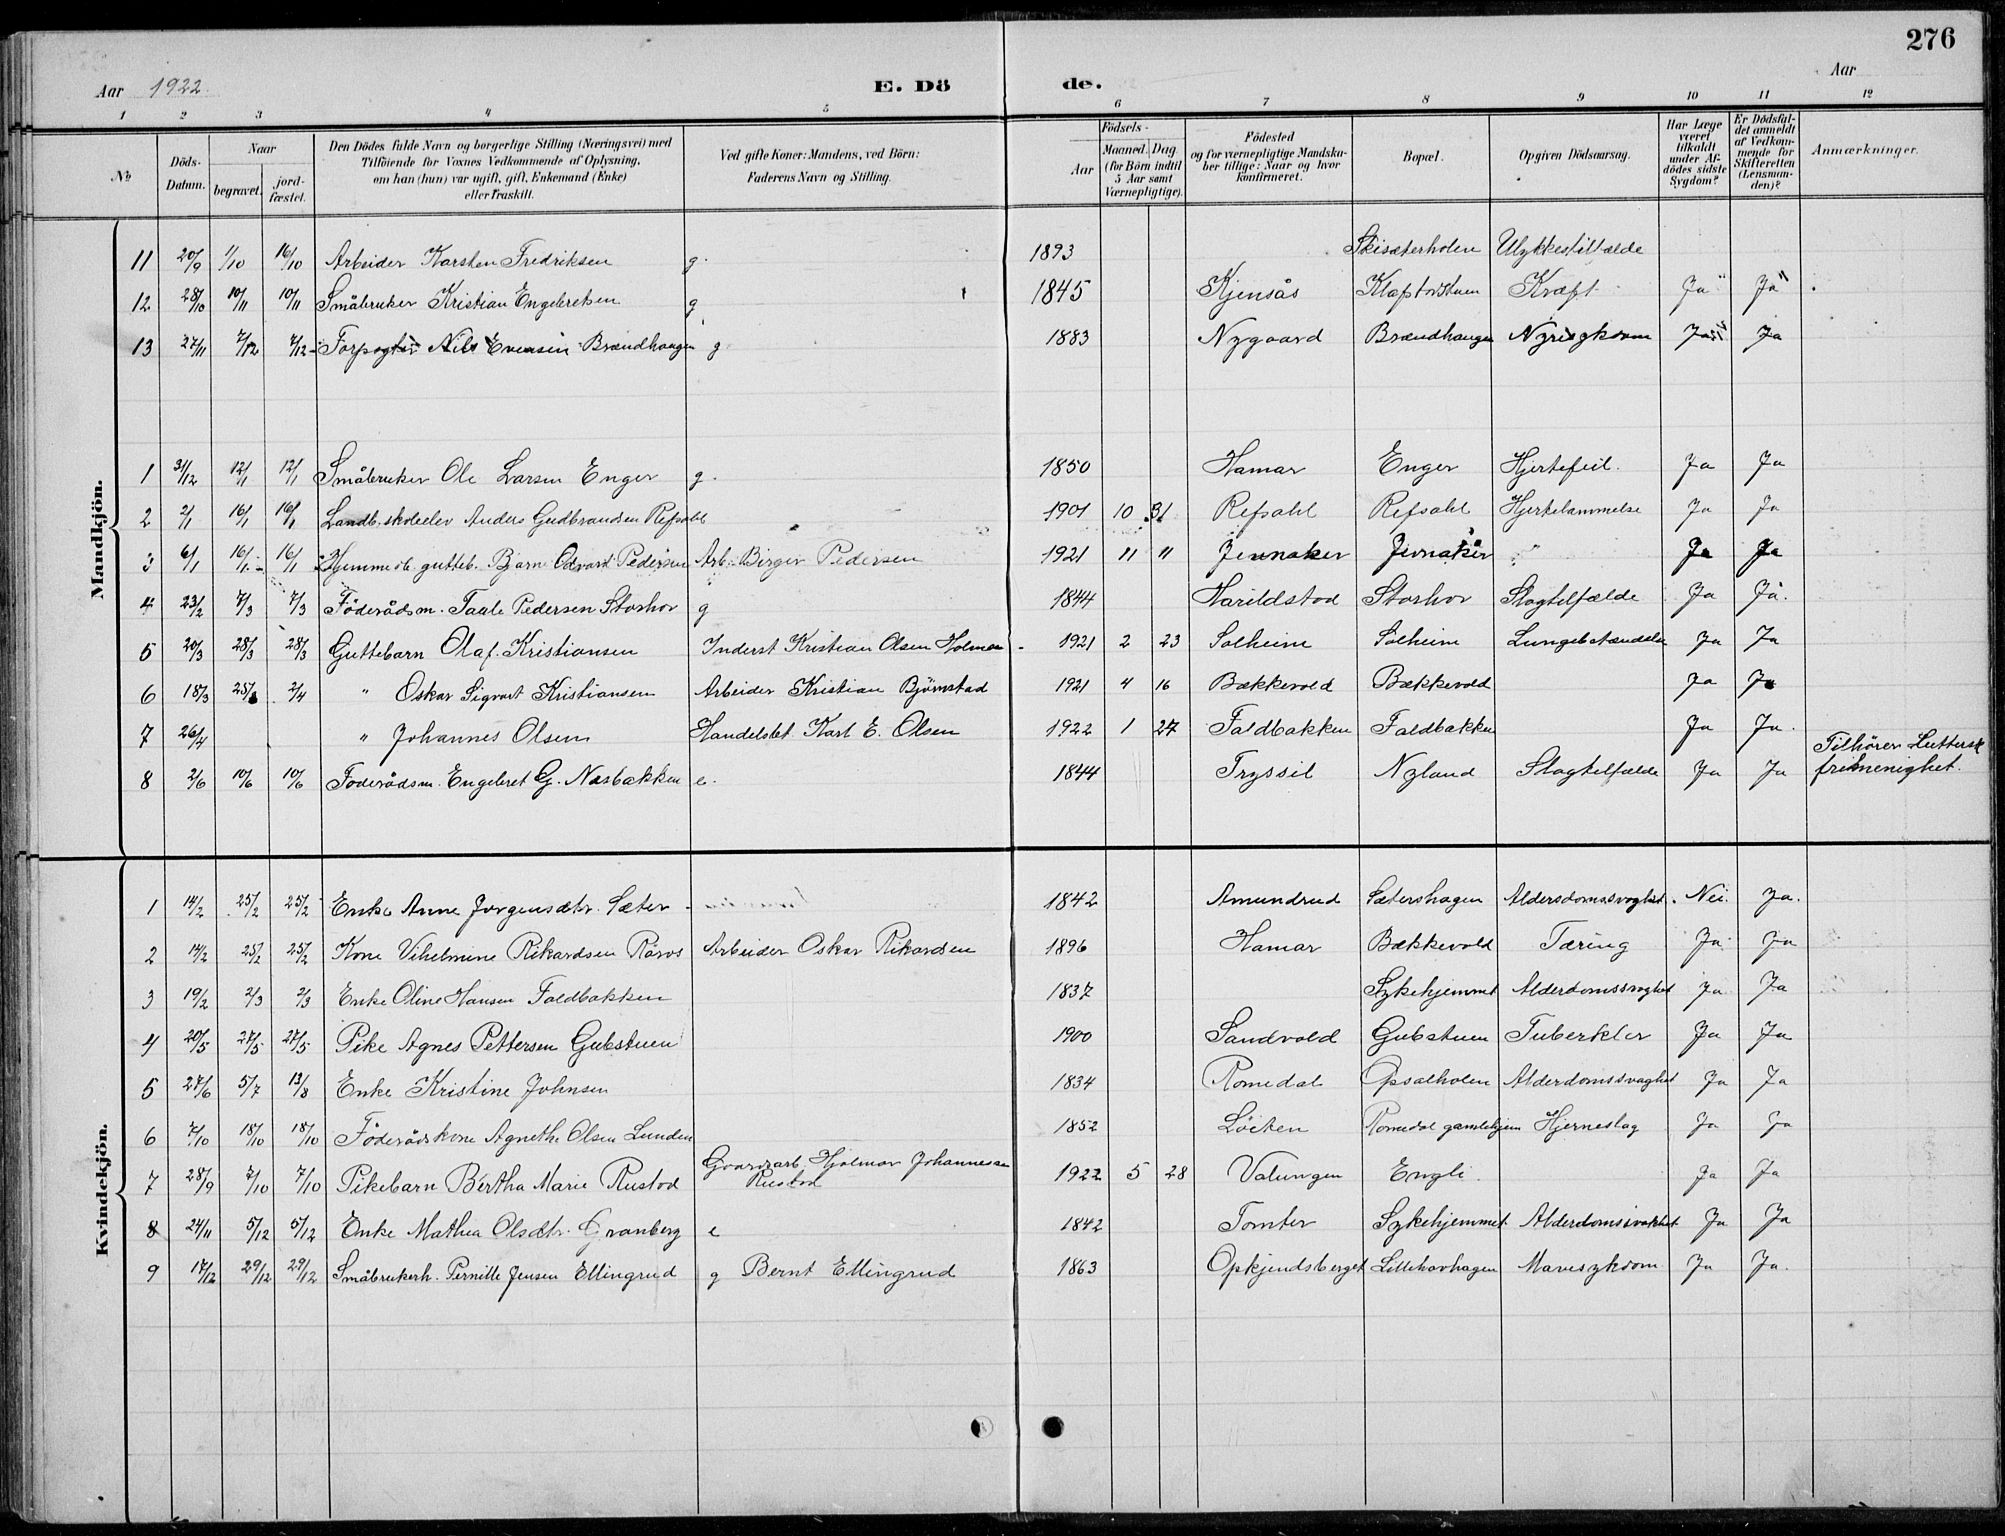 276
Aar 1922. E. Dö de. Aar
1 2 3 4 5 6 7 8 9 10 11 12
№ Döds-Datum. Naar begravet. jord-fæstet. Den Dödes fulde Navn og borgerlige Stilling (Næringsvei) med Tilföiende for Voxnes Vedkommende af Oplysning, om han (hun) var ugift, gift, Enkemand (Enke) eller fraskilt. Ved gifte Koner: Mandens, ved Börn: Faderens Navn og Stilling. Födsels- Aar Maaned. Dag. (for Börn indtil 5 Aar samt Værnepligtige). Födested og for værnepligtige Mandskaber tillige: Naar og hvor konfirmeret. Bopæl. Opgiven Dödsaarsag. Har Læge været tilkaldt under Afdödes sidste Sygdom? Er Dödsfaldet anmeldt af Vedkommende for Skifteretten (Lensmanden)? Anmærkninger.
Mandkjön.
11 20/9 1/10 16/10 Arbeider Karsten Fredriksen g. 1893 Skisæterholen Ulykkestilfælde
12 28/10 10/11 10/11 Småbruker Kristian Engebretsen g 1845 Kjensås Kræft Ja Ja
13 27/11 7/12 7/12 Forpagter Nils Evensen Brændhaugen g 1883 Nygaard Brændhaugen Nyresykdom Ja Ja
1 31/12 12/1 12/1 Småbruker Ole Larsen Enger g. 1850 Hamar Enger Hjertefeil. Ja Ja
2 2/1 16/1 16/1 Landb.skoleelev Anders Gudbrandsen Refsahl 1901 10 31 Refsahl Refsahl Hjertelammelse Ja Ja
3 6/1 16/1 16/1 Hjemmedb. gutteb. Bjarne Edvard Pedersen Arb. Birger Pedersen 1921 11 11 Jevnaker Jevnaker " Ja Ja
4 23/2 7/3 7/3 Föderådsm. Taale Pedersen Storhov g 1844 Harildstad Storhov Slagtilfælde Ja Ja.
5 20/3 28/3 28/3 Guttebarn Olaf Kristiansen Inderst Kristian Olsen Holmen 1921 2 23 Solheim Solheim Lungebetændelse Ja Ja
6 18/3 25/3 2/4 " Oskar Sigvart Kristiansen Arbeider Kristian Björnstad 1921 4 16 Bækkevold Bækkevold Ja Ja
7 26/4 " Johannes Olsen Handelsbet. Karl E. Olsen 1922 1 27 Faldbakken Faldbakken Ja Ja.
8 2/6 10/6 10/6 Foderådsm. Engebret G. Næsbakken e. 1844 Tryssil Nyland Slagtilfælde Ja Ja Tilhörer Luttersk frimenighet.
Kvindekjön.
1 14/2 25/2 25/2 Enke Anne Jörgensdtr. Sæter 1842 Amundrud Sætershagen Aldersdomssvaghet. Nei. Ja.
2 14/2 25/2 25/2 Kone Vilhelmine Rikardsen Röros Arbeider Oskar Rikardsen 1896 Hamar Bækkevold Tæring Ja Ja
3 19/2 2/3 2/3 Enke Oline Hansen Faldbakken 1837 Sykehjemmet Alderdomssvaghet Ja Ja
4 20/5 27/5 27/5 Pike Agnes Pettersen Gubstuen 1900 Sandvold Gubstuen Tuberkler Ja Ja
5 27/6 5/7 13/8 Enke Kristine Johnsen 1834 Romedal Opsalholen Alderdomssvaghet Ja Ja
6 7/10 18/10 18/10 Föderådskone Agnethe Olsen Lunden 1852 Löiten Romedal gamlehjem Hjerneslag Ja Ja
7 28/9 7/10 7/10 Pikebarn Bertha Marie Rustad Gaardsarb. Hjalmar Johannessen Rustad 1922 5 28 Valungen Engli. Ja Ja
8 24/11 5/12 5/12 Enke Mathea Olsdtr. Granberg e 1842 Tomter Sykehjemmet Alderdomssvakhet Ja Ja
9 17/12 29/12 29/12 Småbrukerh. Pernille Jensen Ellingrud g Bernt Ellingrud 1863 Opkjendsberget Lillehovhagen Mavesykdom Ja Ja.